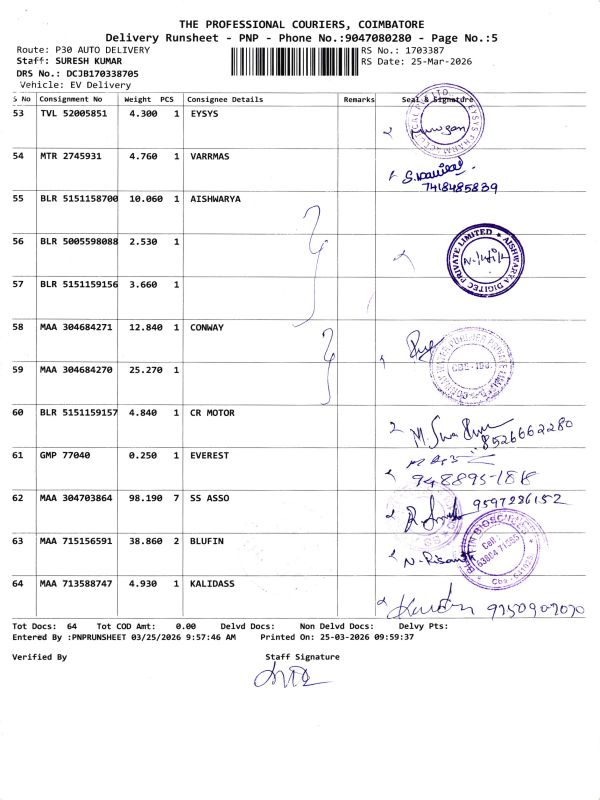 THE PROFESSIONAL COURIERS, COIMBATORE
Delivery Runsheet - PNP - Phone No.:9047080280 - Page No.:5
Route: P30 AUTO DELIVERY
RS No.: 1703387
Staff: SURESH KUMAR
RS Date: 25-Mar-2026
DRS No.: DCJB170338705
Vehicle: EV Delivery
S No Consignment No Weight PCS Consignee Details Remarks Seal & Signature
53 TVL 52005851 4.300 1 EYSYS
54 MTR 2745931 4.760 1 VARRMAS
7418485839
55 BLR 5151158700 10.060 1 AISHWARYA
56 BLR 5005598088 2.530 1
AISHWARYA DIGITEC PRIVATE LIMITED
57 BLR 5151159156 3.660 1
58 MAA 304684271 12.840 1 CONWAY
59 MAA 304684270 25.270 1
60 BLR 5151159157 4.840 1 CR MOTOR
8526662280
61 GMP 77040 0.250 1 EVEREST
62 MAA 304703864 98.190 7 SS ASSO
9597286152
63 MAA 715156591 38.860 2 BLUFIN
64 MAA 713588747 4.930 1 KALIDASS
Tot Docs: 64 Tot COD Amt: 0.00 Delvd Docs: Non Delvd Docs: Delvy Pts:
Entered By :PNPRUNSHEET 03/25/2026 9:57:46 AM Printed On: 25-03-2026 09:59:37
Verified By Staff Signature